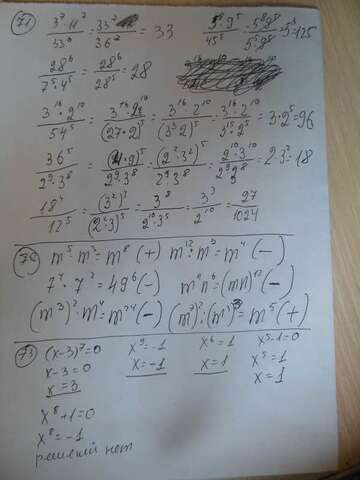 71) (3²·11²)/33⁶ = 33²/36² = 33 (5⁸·9⁵)/45⁵ = (5⁸·9⁸)/(5⁵·9⁵) = 5³ = 125
28⁶/(7⁵·4⁵) = 28⁶/28⁵ = 28
(3¹⁶·2¹⁰)/54⁵ = (3¹⁶·2¹⁰)/(27·2)⁵ = (3¹⁶·2¹⁰)/(3³·2)⁵ = (3¹⁶·2¹⁰)/(3¹⁵·2⁵) = 3·2⁵ = 96
36⁵/(2⁹·3⁸) = (4·9)⁵/(2⁹·3⁸) = (2²·3²)⁵/(2⁹·3⁸) = (2¹⁰·3¹⁰)/(2⁹·3⁸) = 2·3² = 18
18⁴/12⁵ = (3²)⁷/(2²·3)⁵ = 3⁸/(2¹⁰·3⁵) = 3³/2¹⁰ = 27/1024
72) m⁵·m³ = m⁸ (+) m¹²:m³ = m⁴ (−)
7⁴·7² = 49⁶ (−) mⁿn⁶ = (mn)¹² (−)
(m³)²·m⁴ = m²⁴ (−) (m⁷)²:(m³)³ = m⁵ (+)
73) (x−3)²=0 x⁹=−1 x⁶=1 x⁵−1=0
x−3=0 x=−1 x=1 x⁵=1
x=3 x=1
x⁸+1=0
x⁸=−1
решений нет